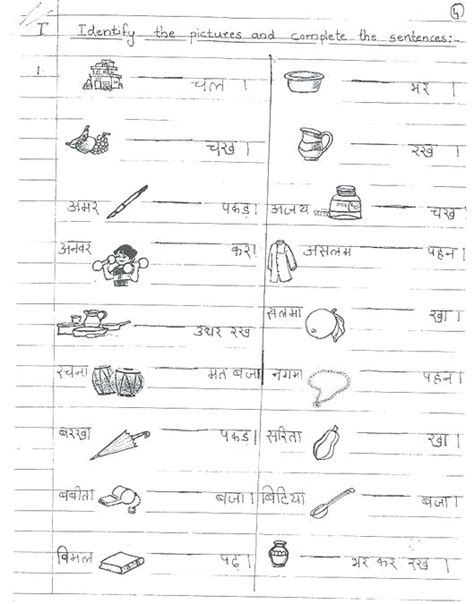 4
I Identify the pictures and complete the sentences:-
1. चल । भर ।
चख । रख ।
अमर पकड़। अजय चख ।
अनवर कर। असलम पहन ।
उधर रख सलमा खा ।
रचना मत बजा। नगमा पहन ।
बरखा पकड़। सरिता खा ।
बबीता बजा। बिटिया बजा ।
विमल पढ़ । भर कर रख ।